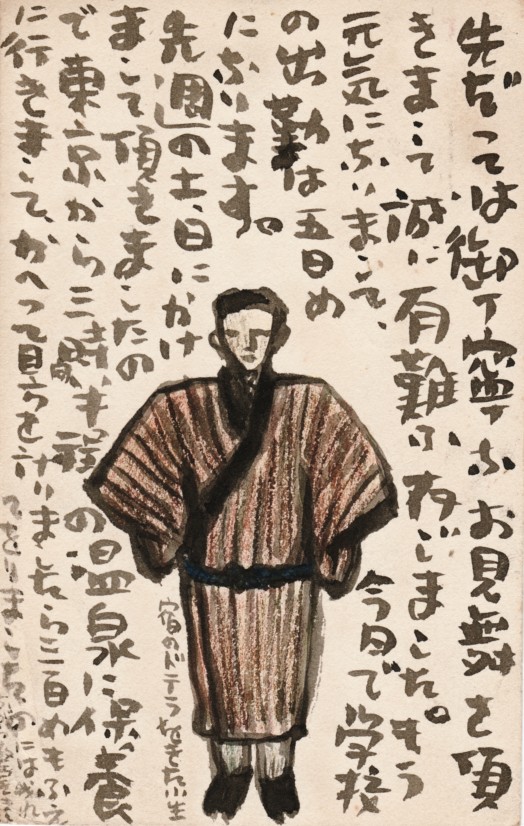 先だっては御丁寧なお見舞を頂
きまして誠に有難ふ存じました。もう
元気になりまして、今日で学校
の出勤は五日め
になります。
先週の土、日にかけ
まして頂きましたの
で東京から三時間半程の温泉に保養
に行きまして、かへつて目方を計りましたら三百めもふえ
宿のドテラをきた小生